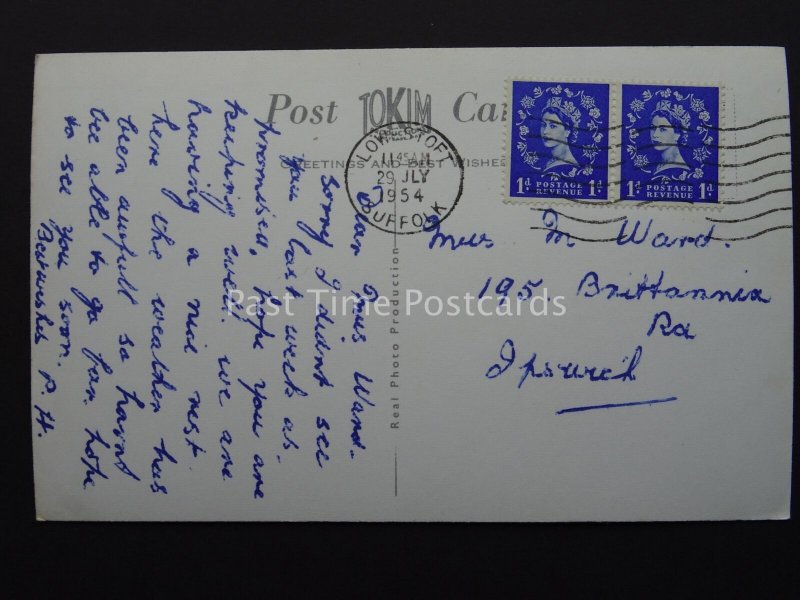 Post TOKIM Car
GREETINGS AND BEST WISHES
LOWESTOFT
11 45 AM
29 JLY
1954
SUFFOLK
1d POSTAGE REVENUE 1d
1d POSTAGE REVENUE 1d
Dear Miss Ward.
Sorry I didnt see
you last week as
promised, hope you are
keeping well. we are
having a nice rest
here the weather has
been awfull so havnt
bee able to go far. hope
to see you soon.
Best wishes P. H.
Real Photo Production
Miss M Ward.
195. Brittannia
Rd
Ipswich
Past Time Postcards